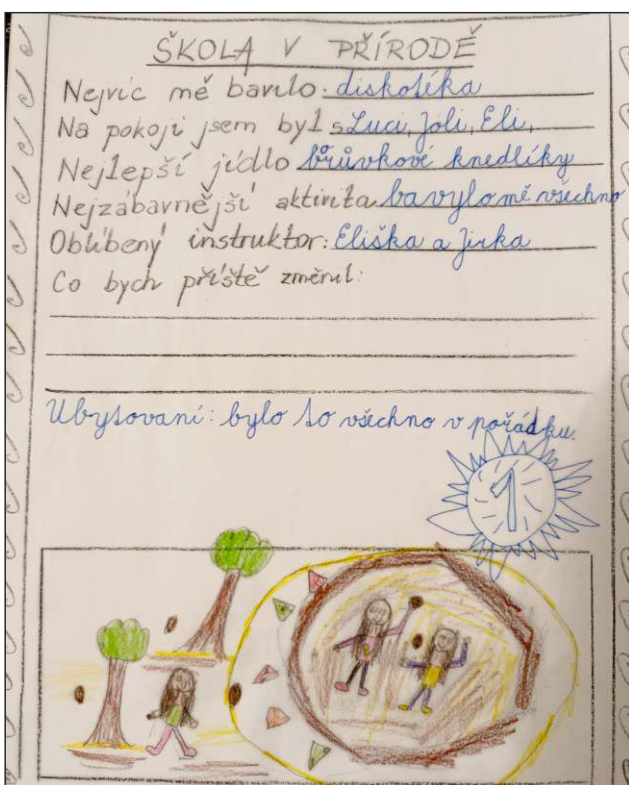 ŠKOLA V PŘÍRODĚ
Nejvíc mě bavilo: diskotéka
Na pokoji jsem byl s Luci, Joli, Eli,
Nejlepší jídlo bŕůvkové knedlíky
Nejzábavnější aktivita bavylo mě všechno
Oblíbený instruktor: Eliška a Jirka
Co bych příště změnil:
Ubytovaní: bylo to všechno v pořádku.
1